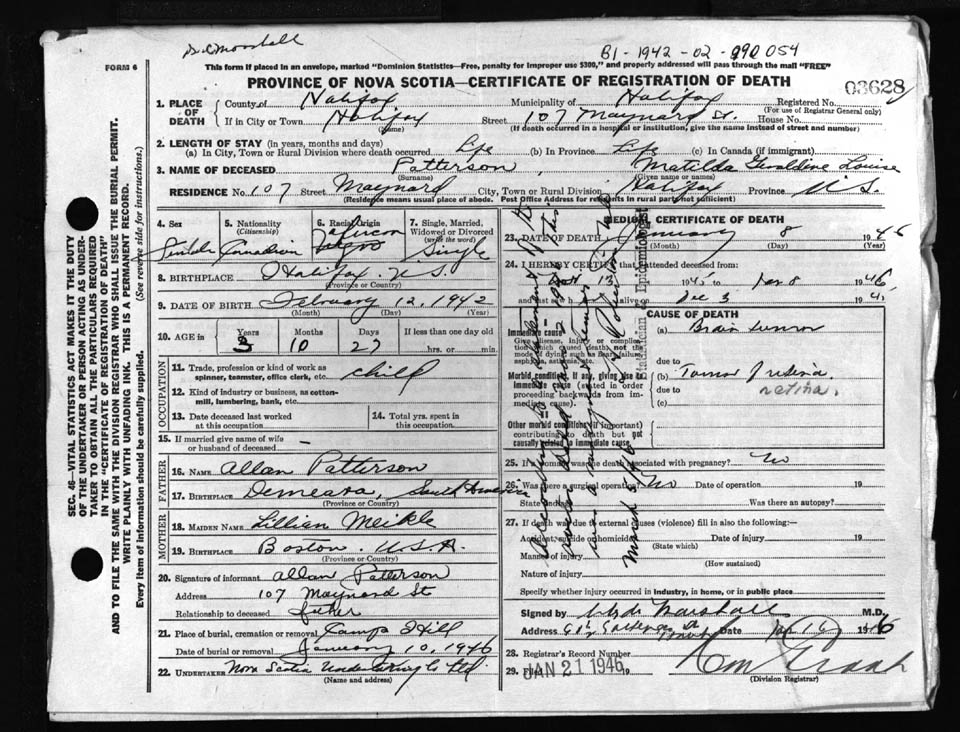 B1-1942-02-090054
FORM 6
This form if placed in an envelope, marked "Dominion Statistics—Free, penalty for improper use $300," and properly addressed will pass through the mail "FREE"
PROVINCE OF NOVA SCOTIA—CERTIFICATE OF REGISTRATION OF DEATH
03628
1. PLACE OF DEATH County of Halifax Municipality of Halifax Registered No.
(For use of Registrar General only)
If in City or Town Halifax Street 107 Maynard St. House No.
(Name) (If death occurred in a hospital or institution, give the name instead of street and number)
2. LENGTH OF STAY (in years, months and days)
(a) In City, Town or Rural Division where death occurred Life (b) In Province Life (c) In Canada (if immigrant)
3. NAME OF DECEASED Patterson, Matilda Geraldine Louise
(Surname) (Given name or names)
RESIDENCE No. 107 Street Maynard City, Town or Rural Division Halifax Province N.S.
(Residence means usual place of abode. Post Office Address for residents in rural parts not sufficient)
4. Sex 5. Nationality (Citizenship) 6. Racial Origin 7. Single, Married, Widowed or Divorced (write the word)
Female Canadian African Negro Single
8. BIRTHPLACE Halifax. N.S.
(Province or Country)
9. DATE OF BIRTH February 12, 1942
(Month) (Day) (Year)
10. AGE in Years Months Days If less than one day old
3 10 27 hrs. or min.
OCCUPATION
11. Trade, profession or kind of work as spinner, teamster, office clerk, etc. child
12. Kind of industry or business, as cotton-mill, lumbering, bank, etc.
13. Date deceased last worked at this occupation
14. Total yrs. spent in this occupation
15. If married give name of wife or husband of deceased —
FATHER
16. NAME Allan Patterson
17. BIRTHPLACE Demerara, South America
(Province or Country)
MOTHER
18. MAIDEN NAME Lillian Meikle
19. BIRTHPLACE Boston. U.S.A.
(Province or Country)
20. Signature of informant Allan Patterson
Address 107 Maynard St
Relationship to deceased father
21. Place of burial, cremation or removal Camp Hill
Date of burial or removal January 10, 1946
22. UNDERTAKER Nova Scotia Undertaking Co Ltd.
(Name and address)
MEDICAL CERTIFICATE OF DEATH
23. DATE OF DEATH January 8 1946
(Month) (Day) (Year)
24. I HEREBY CERTIFY that I attended deceased from
13 194 to Jan 8 1946
and last saw h alive on Dec 3 194
CAUSE OF DEATH
Immediate cause
Give disease, injury or complication which caused death, not the mode of dying, such as heart failure, asphyxia, asthenia, etc.
(a) Brain tumor
due to
Morbid conditions, if any, giving rise to immediate cause (stated in order proceeding backwards from immediate cause).
(b) Tumor of retina
due to retina.
(c)
Other morbid conditions (if important) contributing to death but not causally related to immediate cause.
25. If a woman was the death associated with pregnancy? No
26. Was there a surgical operation? No Date of operation 19
State findings Was there an autopsy?
27. If death was due to external causes (violence) fill in also the following:—
Accident, suicide or homicide Date of injury 19
(State which)
Manner of injury
(How sustained)
Nature of injury
Specify whether injury occurred in industry, in home, or in public place
Signed by Clyde Marshall M.D.
Address Date Jan 16 1946
28. Registrar's Record Number
29. JAN 21 1946 19
(Division Registrar)
March 5/46
Statistician Epidemiologist
SEC. 46—VITAL STATISTICS ACT MAKES IT THE DUTY OF THE UNDERTAKER OR PERSON ACTING AS UNDERTAKER TO OBTAIN ALL THE PARTICULARS REQUIRED IN THE "CERTIFICATE OF REGISTRATION OF DEATH"
AND TO FILE THE SAME WITH THE DIVISION REGISTRAR WHO SHALL ISSUE THE BURIAL PERMIT.
WRITE PLAINLY WITH UNFADING INK. THIS IS A PERMANENT RECORD.
Every item of information should be carefully supplied. (See reverse side for instructions.)